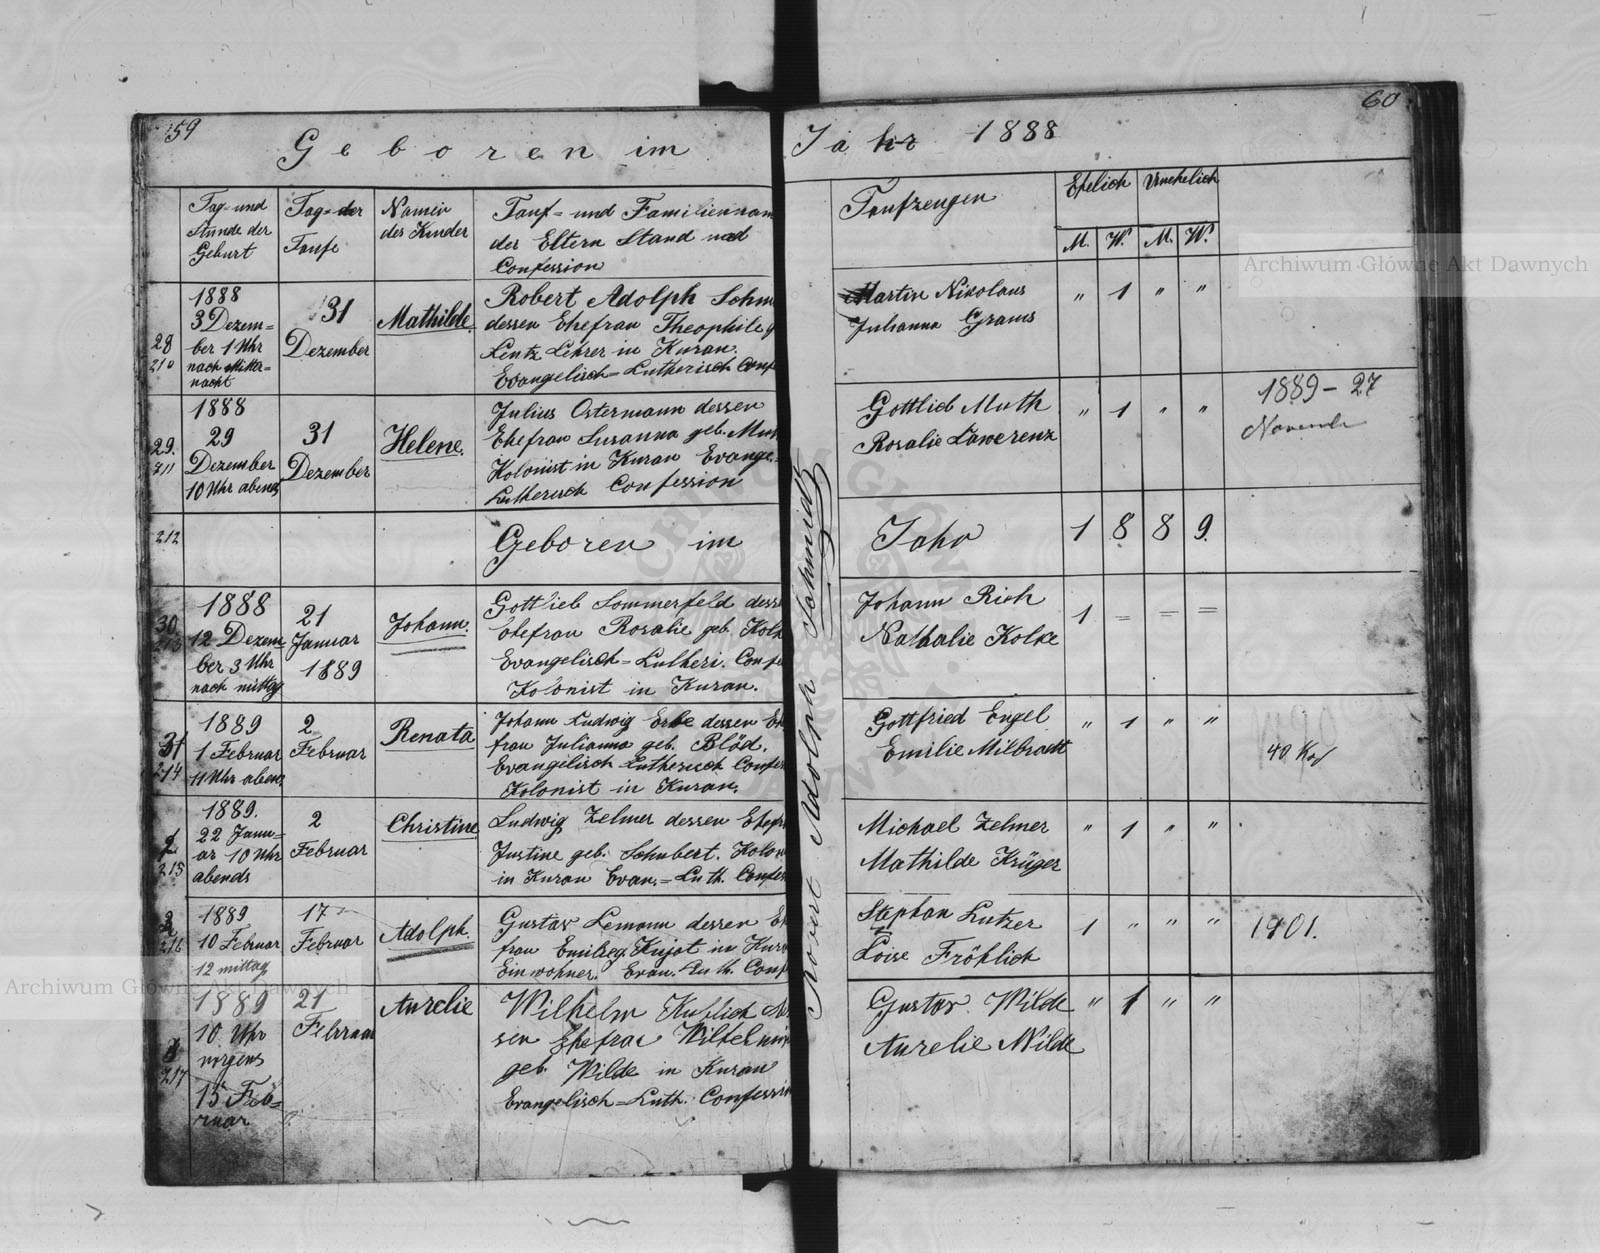 59
Geboren im
Tag- und
Stunde der
Geburt
Tag- der
Taufe
Namen
des Kinder
Tauf- und Familiennam
der Eltern Stand und
Confession
28
210
1888
3 Dezem=
ber 1 Uhr
nach Mitter=
nacht
31
Dezember
Mathilde.
Robert Adolph Schm
dessen Ehefrau Theophile g
Lentz Lehrer in Kuran.
Evangelisch=Lutherisch Conf
29.
211
1888
29
Dezember
10 Uhr abends
31
Dezember
Helene.
Julius Ostermann dessen
Ehefrau Susanna geb. Mut
Kolonist in Kuran Evange.=
Lutherisch Confession
212
Geboren im
30
213
1888
12 Dezem
ber 3 Uhr
nach mittag
21
Januar
1889
Johann.
Gottlieb Sommerfeld dess
Ehefrau Rosalie geb. Kolk
Evangelisch=Lutheri. Conf
Kolonist in Kuran.
31
214
1889
1 Februar
11 Uhr abend
2
Februar
Renata
Johann Ludwig Erbe dessen Eh
frau Julianna geb. Blöd.
Evangelisch Lutherisch Confes
Kolonist in Kuran.
215
1889.
22 Janu=
ar 10 Uhr
abends
2
Februar
Christine
Ludwig Zelmer dessen Ehefr
Justine geb. Schubert. Kolon
in Kuran Evan.=Luth. Confes
216
1889
10 Februar
12 mittag
17
Februar
Adolph.
Gustav Lemann dessen Eh
frau Emilie g. Kujat in Kura
Einwohner. Evan. Luth. Conf
217
1889
10 Uhr
morgens
15 Feb=
ruar
21
Februar
Aurelie
Wilhelm Kublick des
sen Ehefrau Wilhelmin
geb. Wilde in Kuran
Evangelisch=Luth. Confessi
Robert Adolph Schmidt
60
Jahr 1888
Taufzeugen
Ehelich Unehelich
M. W. M. W.
Martin Nikolaus
Julianna Grams
" 1 " "
Gottlieb Muth
Rosalie Lawerenz
" 1 " "
1889 - 27
November
Jahr 1 8 8 9.
Johann Rich
Nathalie Kolke
1 = = =
Gottfried Engel
Emilie Milbradt
" 1 " "
40 Kop
Michael Zelmer
Mathilde Krüger
" 1 " "
Stephan Lutzer
Loise Fröhlich
1 " " "
1901.
Gustav Wilde
Aurelie Wilde
" 1 " "
Archiwum Główne Akt Dawnych
Archiwum Główne Akt Dawnych